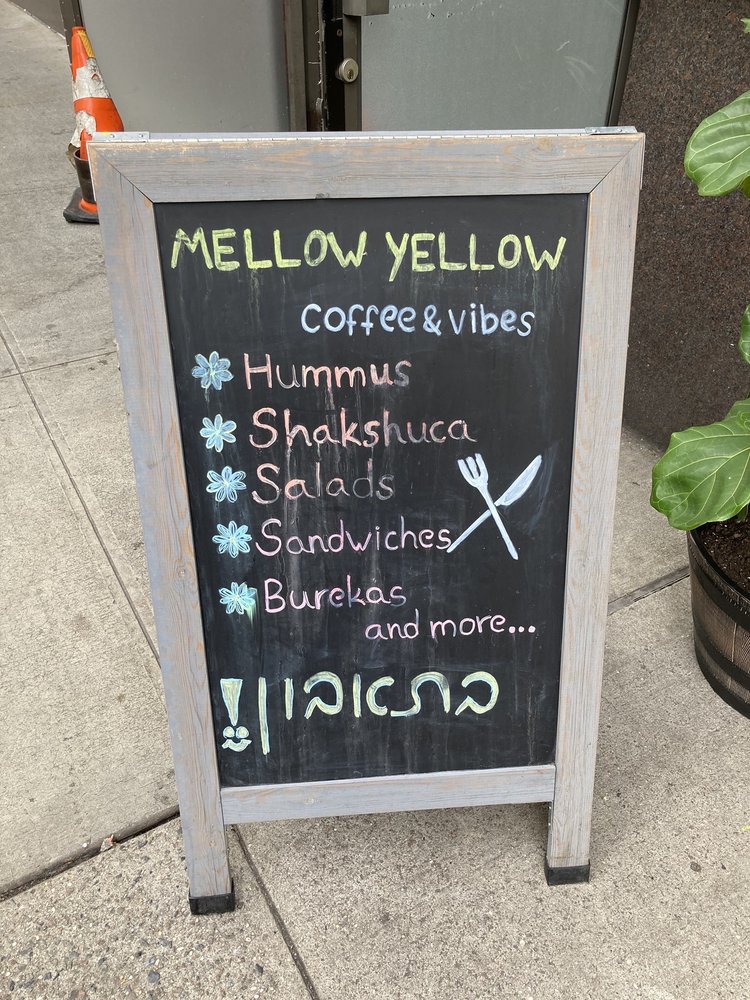 MELLOW YELLOW
coffee & vibes
Hummus
Shakshuca
Salads
Sandwiches
Burekas
and more...
בתאבון!